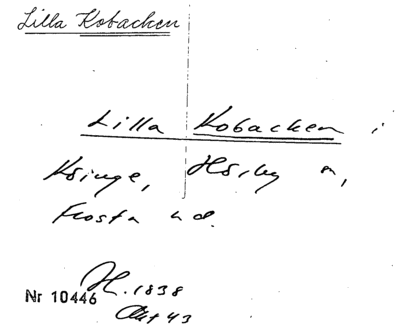 Lilla Kobacken
Lilla Kobacken i
Ksinge, Hörby sn,
Frosta hd.
H. 1838
Nr 10446
Akt 43